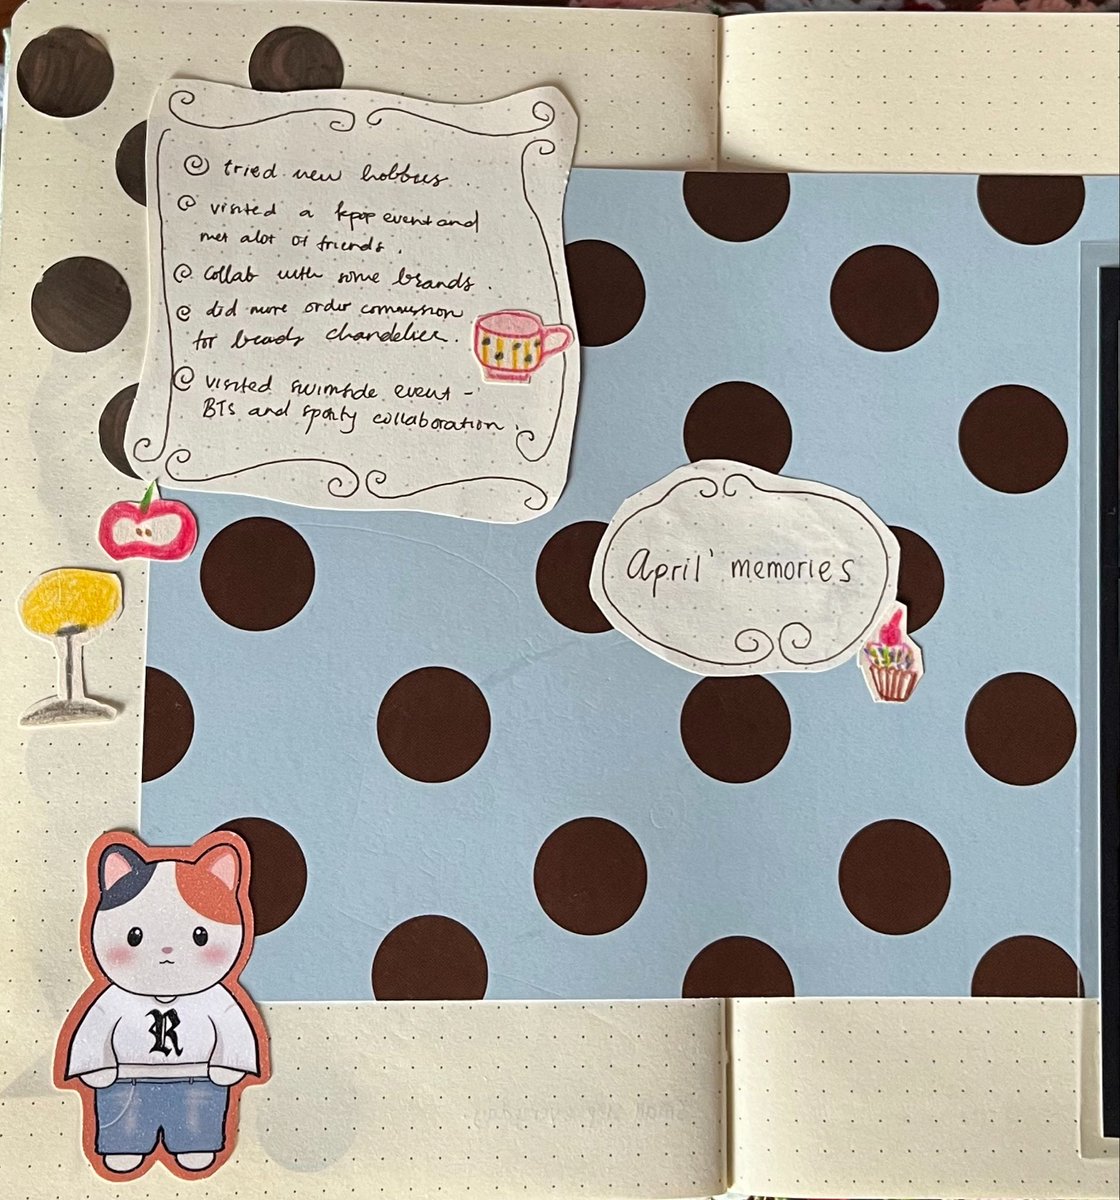 tried new hobbies
visited a kpop event and
met alot of friends.
Collab with some brands.
did more order commission
for beads chandelier.
visited swimside event -
BTS and spotify collaboration.
April' memories
R